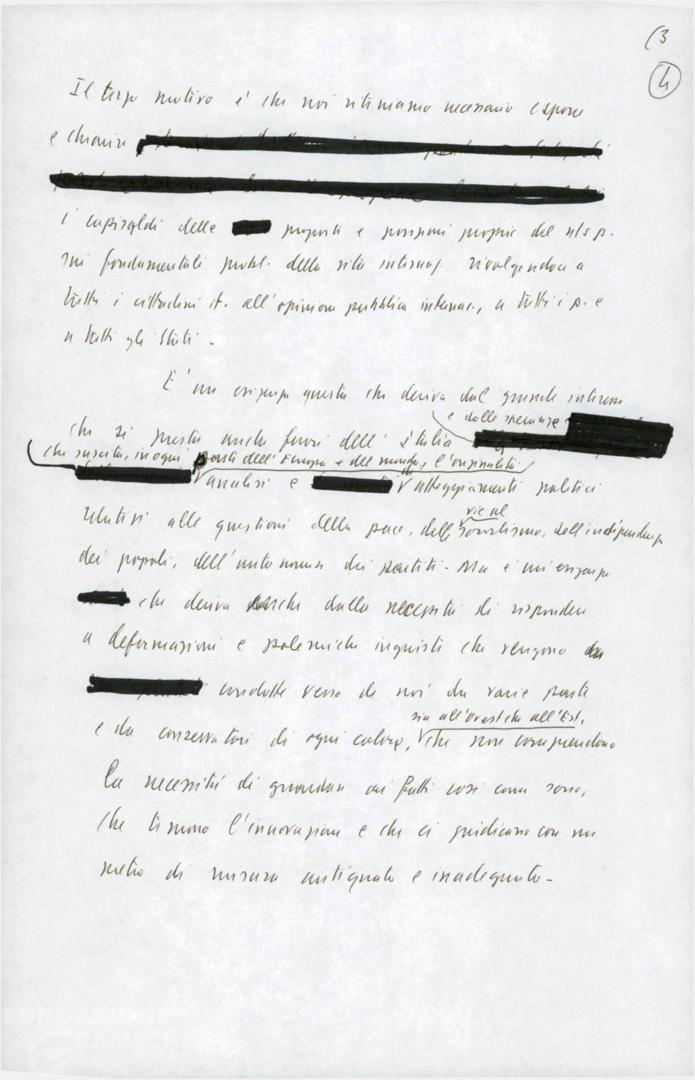 (3
4
Il terzo motivo è che noi riteniamo necessario esporre
e chiarire
i capisaldi delle proposte e posizioni proprie del ns. p.
sui fondamentali probl. della vita internaz. rivolgendoci a
tutti i cittadini it. all'opinione pubblica internaz., a tutti i p. e
a tutti gli Stati -
E' un'esigenza questa che deriva dal grande interesse
e dalle speranze
che si presta anche fuori dell'Italia
che suscita, in ogni parte dell'Europa e del mondo, l'originalità
analisi e atteggiamenti politici
vie al
relativi alle questioni della pace, delle socialismo, dell'indipendenza
dei popoli, dell'autonomia dei partiti. Ma è un'esigenza
che deriva anche dalla necessità di rispondere
a deformazioni e polemiche ingiuste che vengono
condotte verso di noi da varie parti
sia all'Ovest che all'Est,
e da conservatori di ogni colore, che non comprendono
la necessità di guardare ai fatti così come sono,
che temono l'innovazione e che ci giudicano con un
metro di misura antiquato e inadeguato -